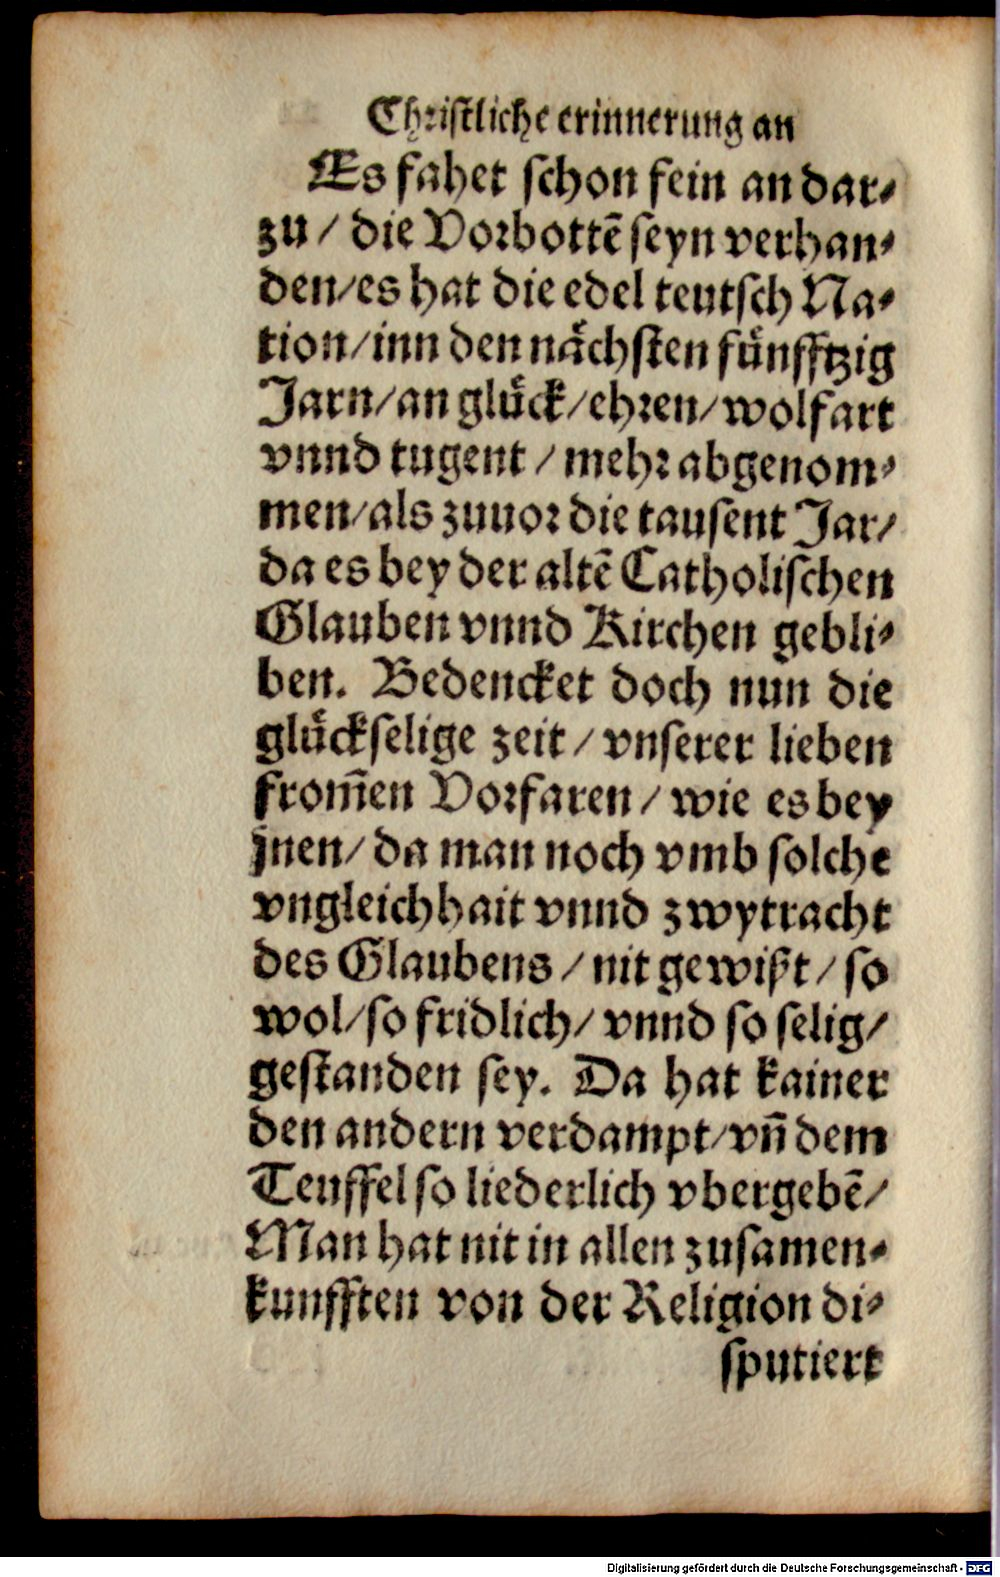 Christliche erinnerung an
Es fahet schon fein an dar⸗
zu / die Vorbottẽ seyn verhan⸗
den/es hat die edel teutsch Na⸗
tion/inn den nåchsten fünfftzig
Jarn/an glück/ehren/wolfart
vnnd tugent / mehr abgenom⸗
men/als zuuor die tausent Jar/
da es bey der altẽ Catholischen
Glauben vnnd Kirchen gebli⸗
ben. Bedencket doch nun die
glückselige zeit / vnserer lieben
from̃en Vorfaren / wie es bey
jnen/ da man noch vmb solche
vngleichhait vnnd zwytracht
des Glaubens / nit gewißt / so
wol/so fridlich/ vnnd so selig/
gestanden sey. Da hat kainer
den andern verdampt/vñ dem
Teuffel so liederlich vbergebẽ/
Man hat nit in allen zusamen⸗
kunfften von der Religion di⸗
sputiert
Digitalisierung gefördert durch die Deutsche Forschungsgemeinschaft - DFG